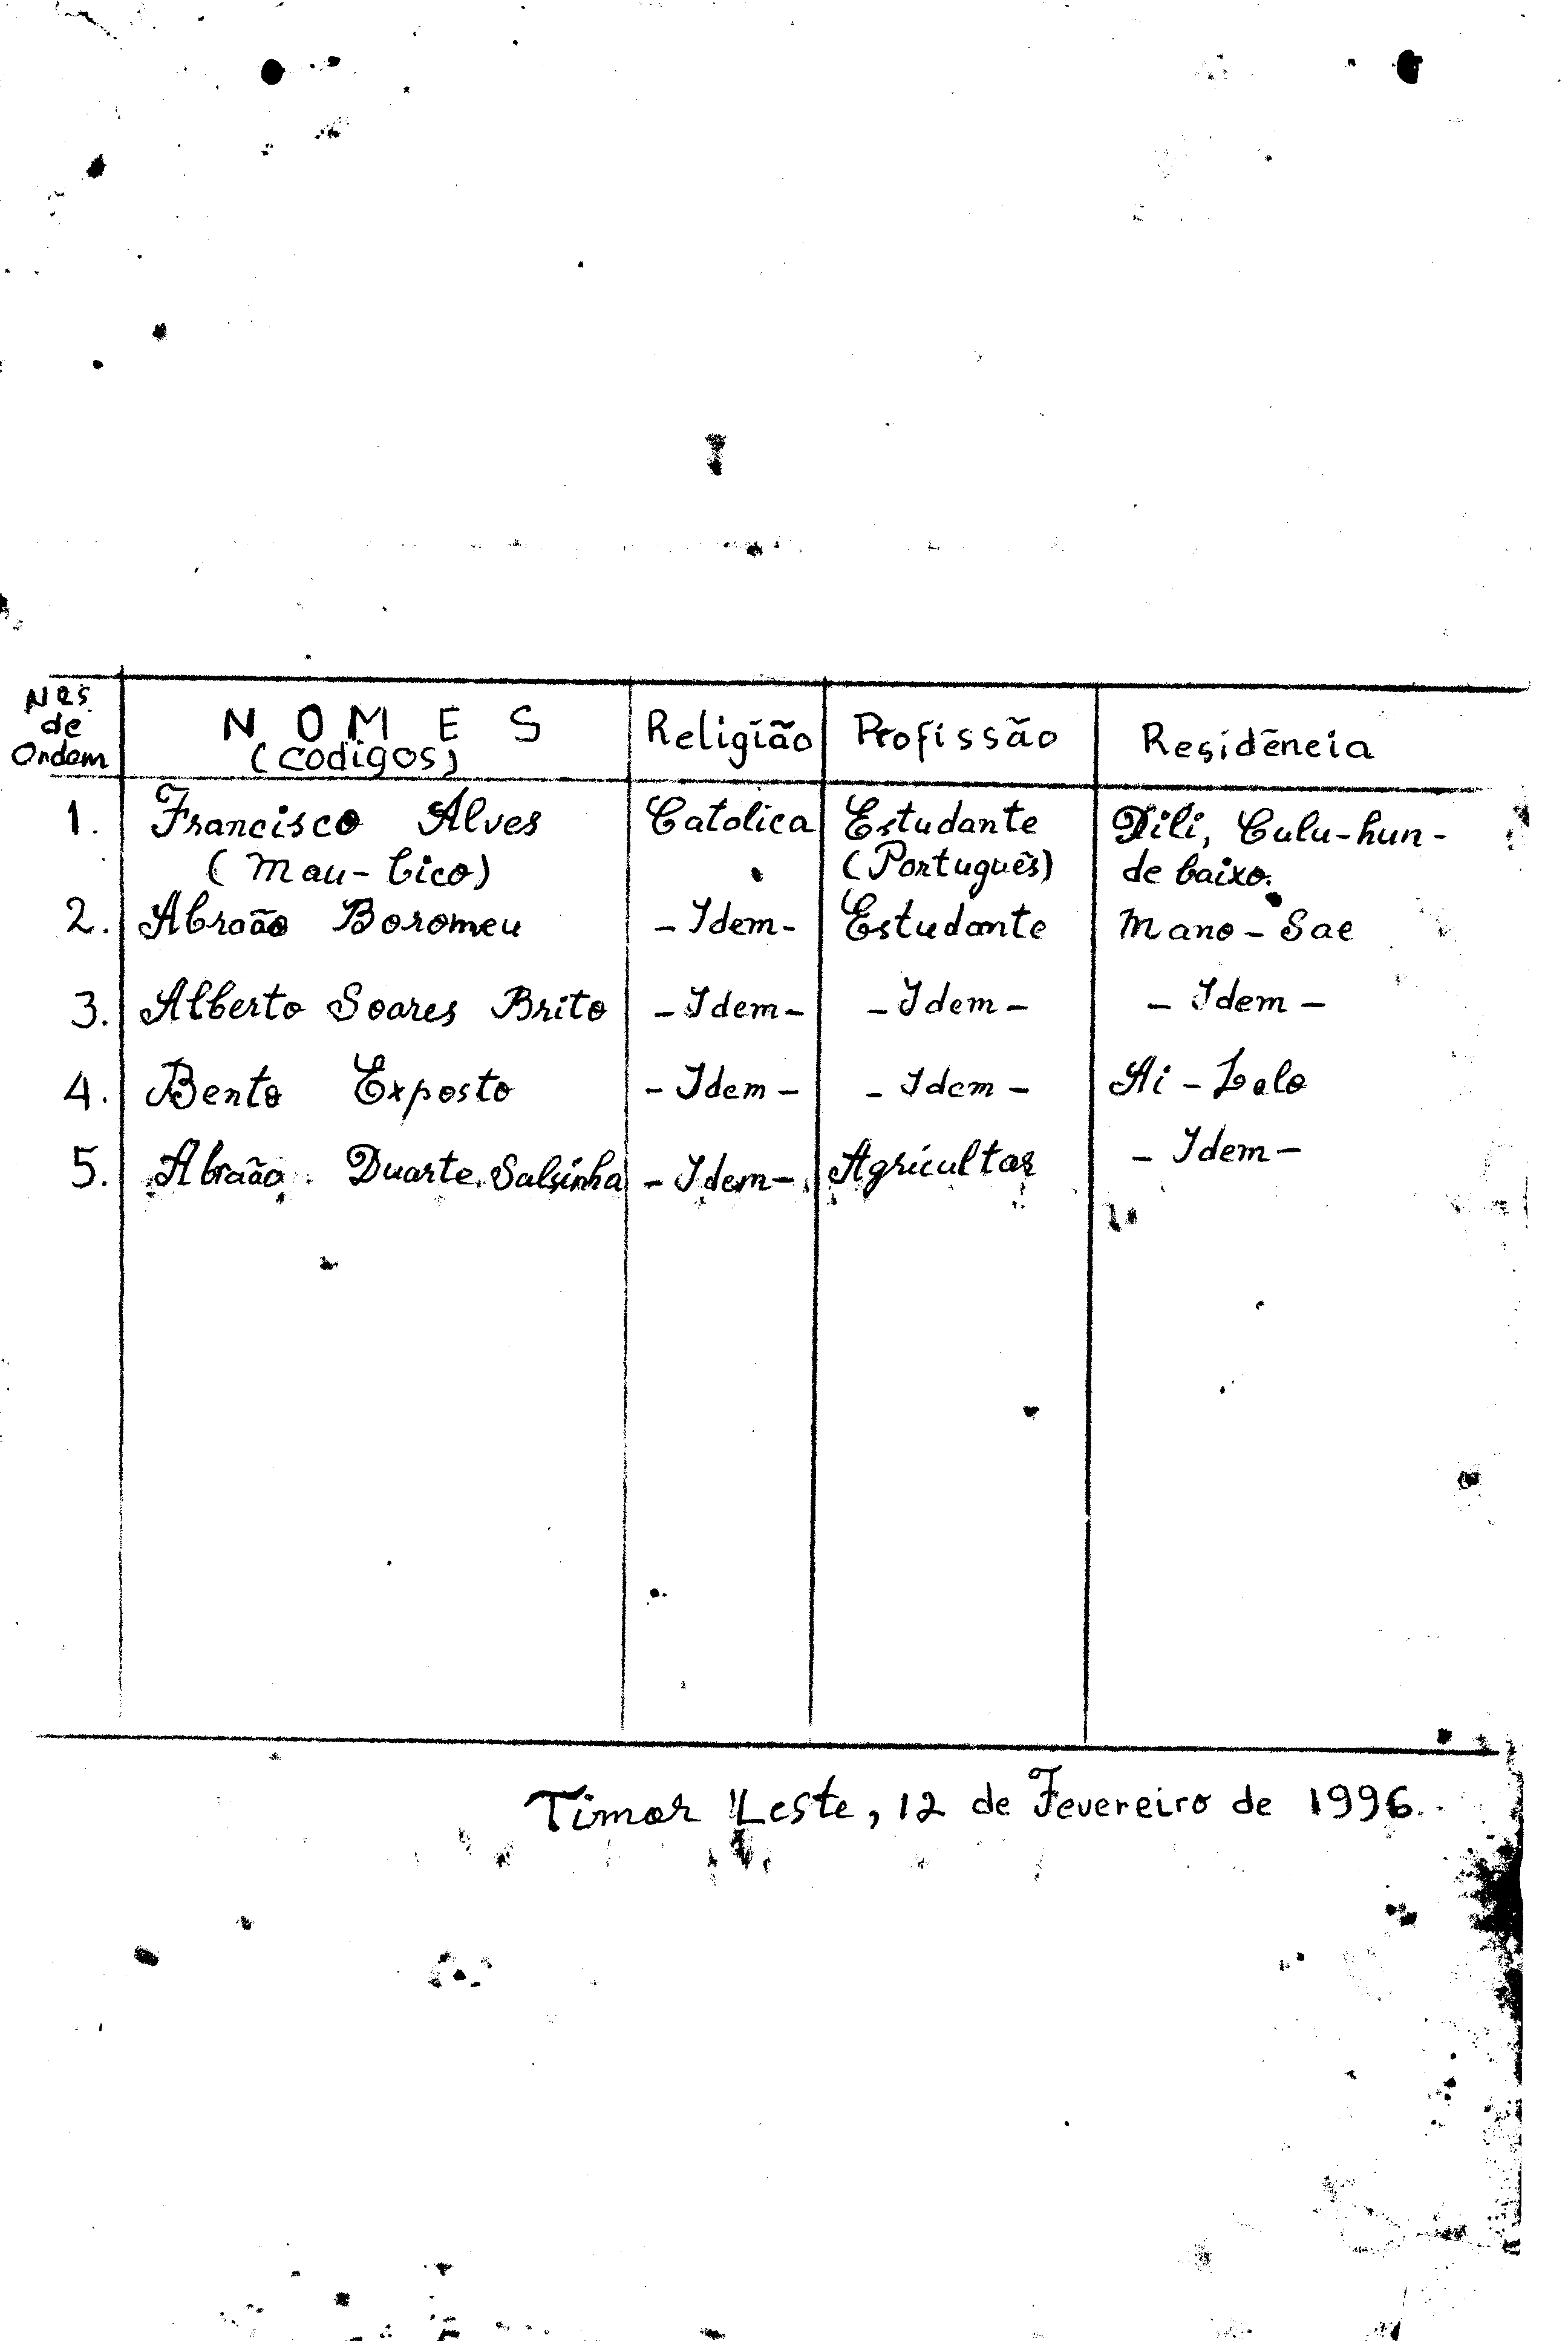 Nes de Ordem | NOMES (codigos) | Religião | Profissão | Residência
1. Francisco Alves Catolica Estudante Dili, Culu-hun-
(Mau-bico) (Português) de baixo.
2. Abraão Boromeu -Idem- Estudante Mano-Sae
3. Alberto Soares Brito -Idem- -Idem- -Idem-
4. Bento Exposto -Idem- -Idem- Ai-Lelo
5. Abraão Duarte Salsinha -Idem- Agricultor -Idem-
Timor Leste, 12 de Fevereiro de 1996.